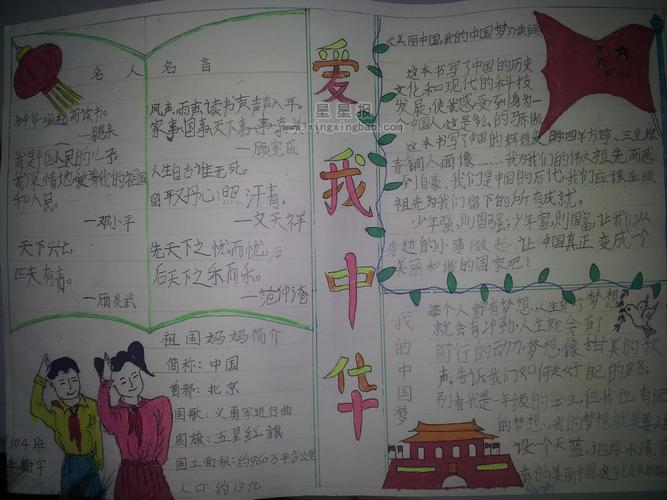 名人名言
为中华崛起而读书。
我是中国人民的儿子。
我深情地爱着我的祖国
和人民。
—邓小平
天下兴亡
匹夫有责。
—顾炎武
风声雨声读书声声声入耳。
家事国事天下事事事关
—顾宪成
人生自古谁无死,
留取丹心照汗青。
—文天祥
先天下之忧而忧,
后天下之乐而乐。
—范仲淹
祖国妈妈简介
简称:中国
首都:北京
国歌:义勇军进行曲
国旗:五星红旗
国土面积:约960万平方公里
人口:约13亿
104班
爱我中华
星星报
www.ixingxingbao.com
《美丽中国,我的中国梦》
这本书写了中国的历史
文化和现代的科技
发展,使我感受到身为一
个中国人这是多么的骄傲
这本书写了中国的辉煌发
青铜人面像……我为我们的伟大祖先而感
到自豪,我们是中国的后代,我们应该继续
祖先为我们留下的所有成就。
少年强,则国强;少年富,则国富,让我们从
身边的小事做起,让中国真正变成一个
美丽和谐的国家吧!
我的中国梦
每个人都有梦想,人生有了梦想
就会有冲劲,人生就会有
前行的动力,梦想像甜美的歌
声,告诉我们如何走好自己的路。
别看我是一年级的学生,但我也有
的梦想,我的梦想就是
设一个天蓝,地绿,水清
的美丽中国